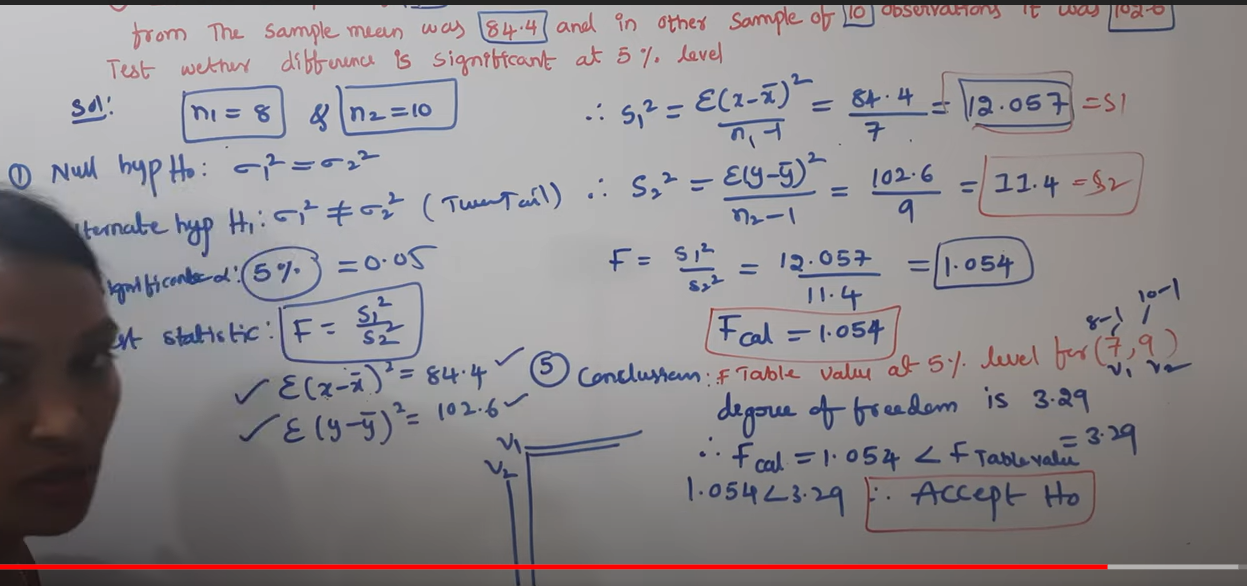 from The sample mean was 84.4 and in other sample of 10 observations it was 102.6
Test wether difference is significant at 5 % level
Sol:
n1 = 8 & n2 = 10
① Null hyp Ho: σ1² = σ2²
ternate hyp H1: σ1² ≠ σ2² (Two Tail)
5% = 0.05
st statistic: F = S1²/S2²
✓ Σ(x-x̄)² = 84.4 ✓
✓ Σ(y-ȳ)² = 102.6 ✓
V1
V2
∴ S1² = Σ(x-x̄)²/n1-1 = 84.4/7 = 12.057 = S1
∴ S2² = Σ(y-ȳ)²/n2-1 = 102.6/9 = 11.4 = S2
F = S1²/S2² = 12.057/11.4 = 1.054
Fcal = 1.054
8-1 10-1
⑤ Conclussion: F Table value at 5% level for (7, 9)
V1 V2
degree of freedom is 3.29
∴ Fcal = 1.054 < F Table value = 3.29
1.054 < 3.29 ∴ Accept Ho